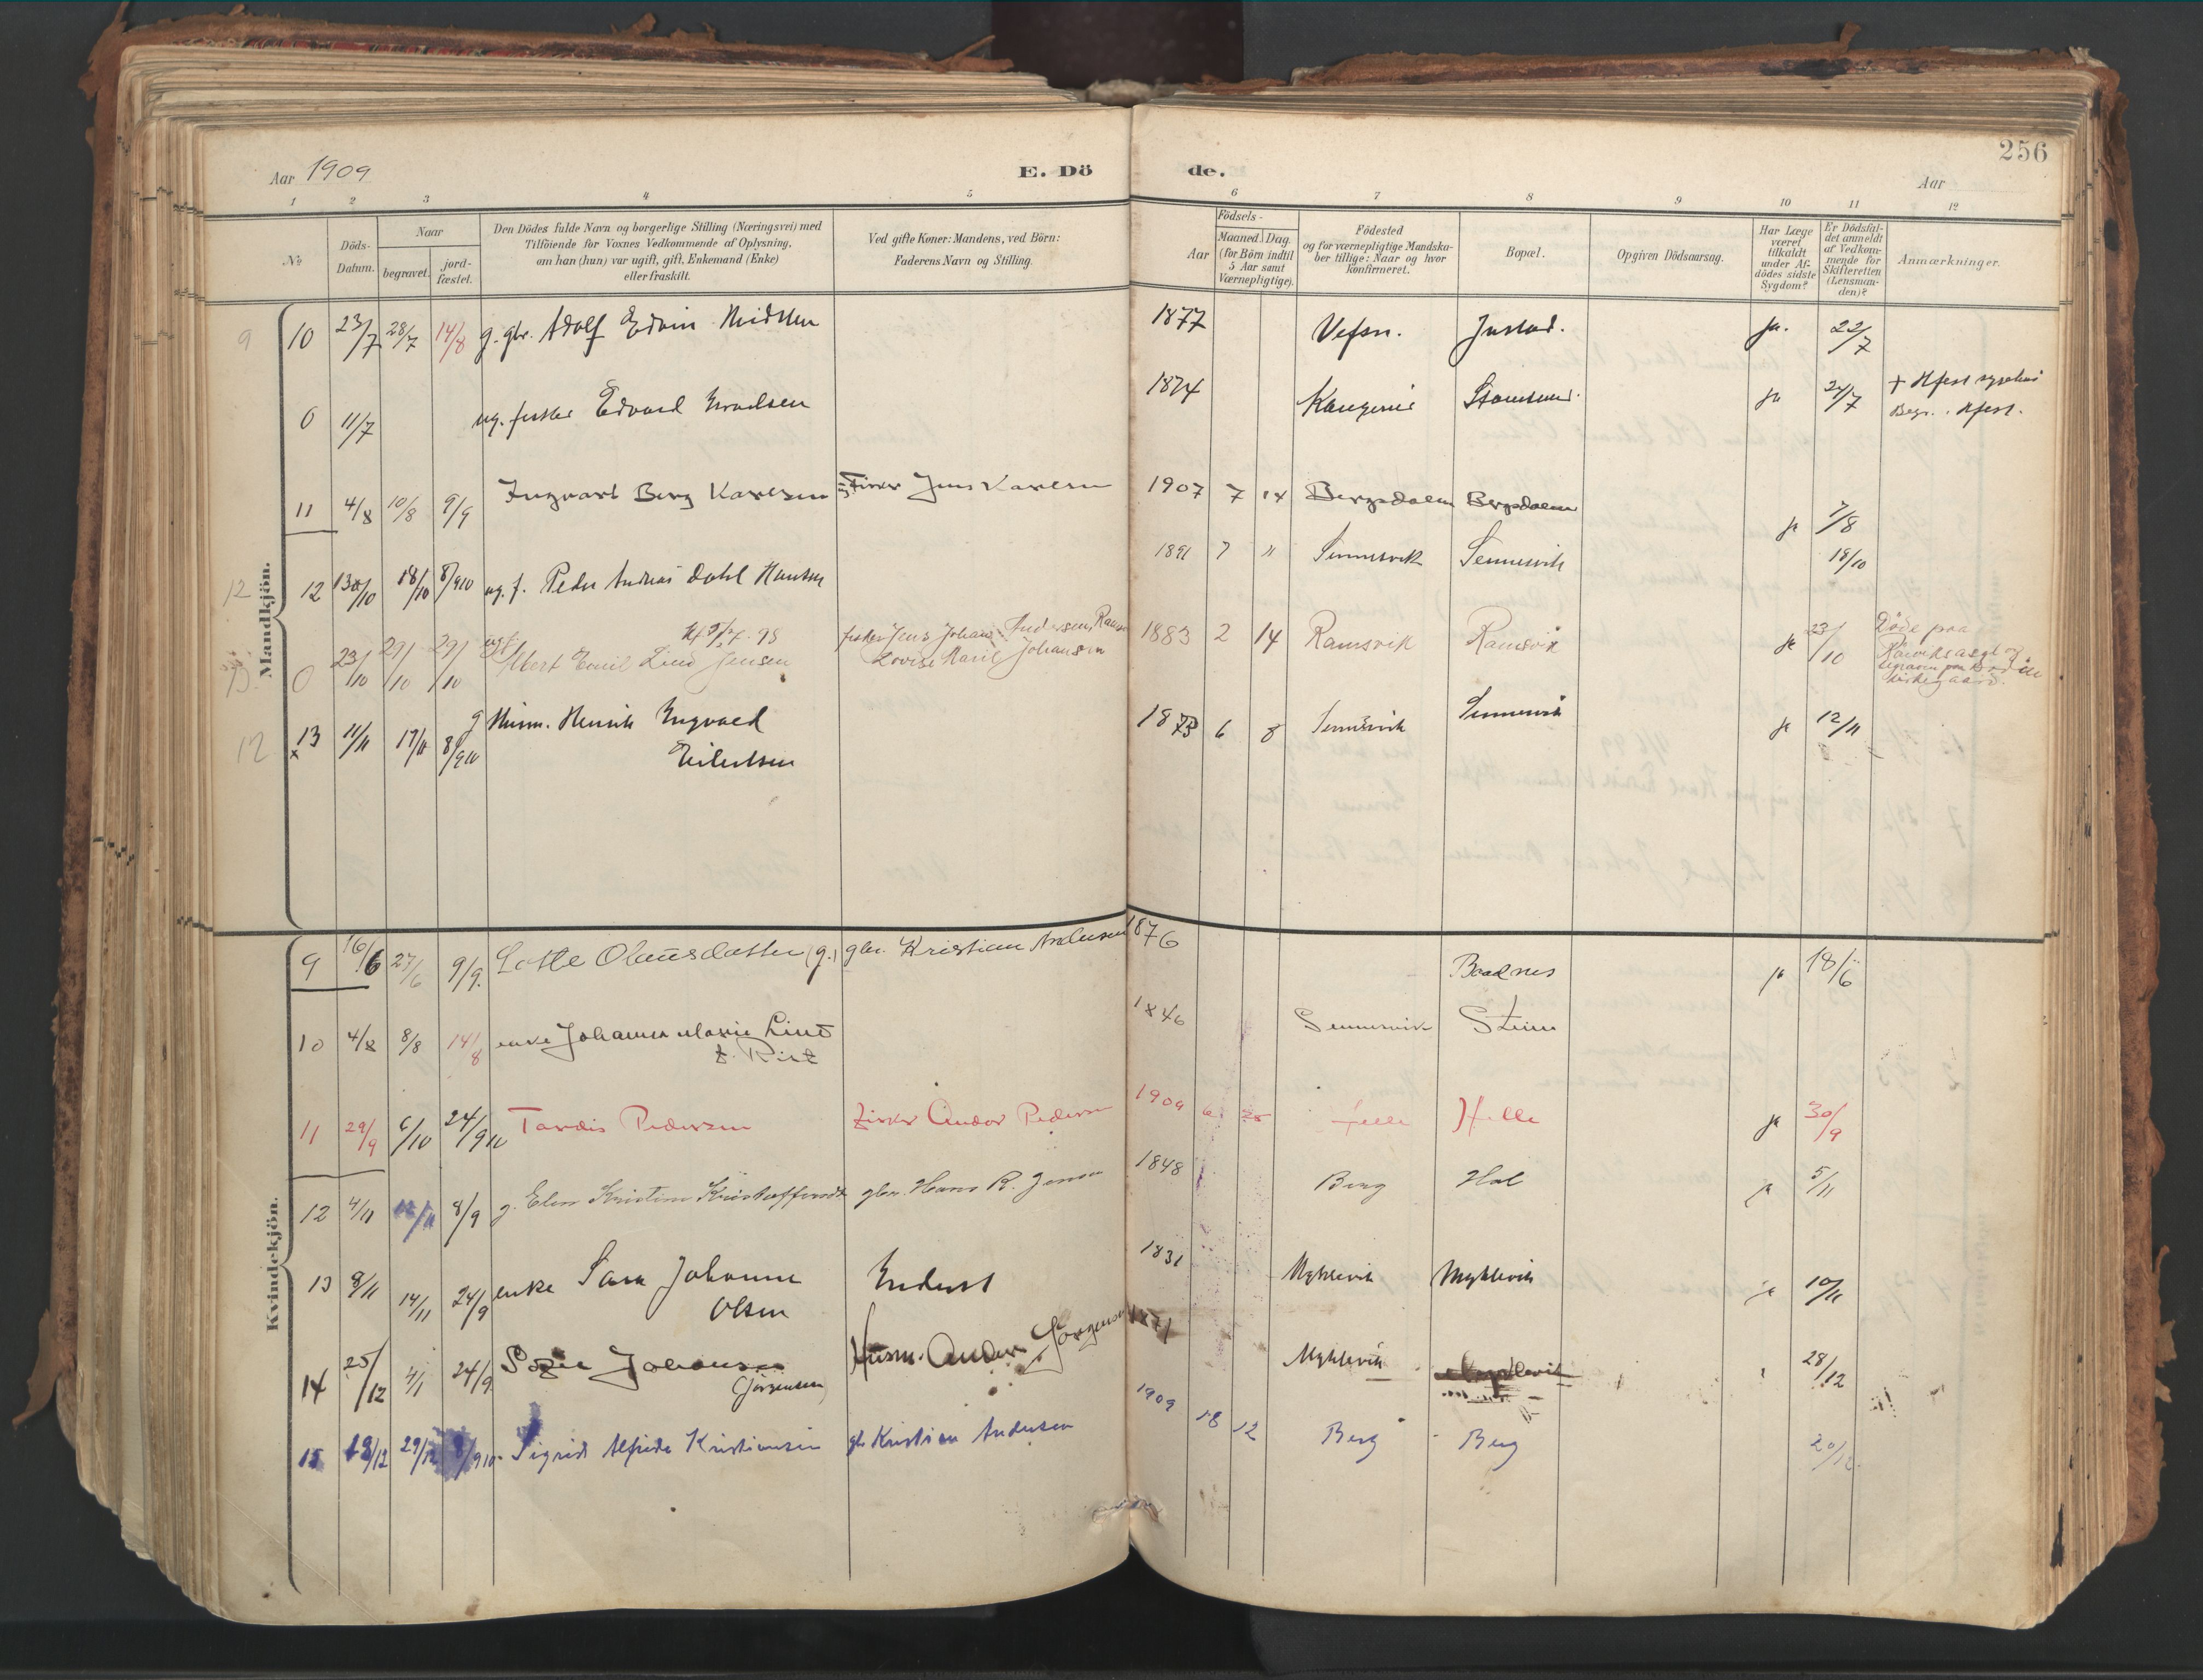 256
Aar 1909
E. Dö
de.
Aar
1 2 3 4 5 6 7 8 9 10 11 12
No
Döds-
Datum.
Naar
begravet.
jord-
fæstet.
Den Dödes fulde Navn og borgerlige Stilling (Næringsvei) med
Tilföiende for Voxnes Vedkommende af Oplysning,
om han (hun) var ugift, gift, Enkemand (Enke)
eller fraskilt.
Ved gifte Koner: Mandens, ved Börn:
Faderens Navn og Stilling.
Födsels-
Aar
Maaned. Dag.
(for Börn indtil
5 Aar samt
Værnepligtige).
Födested
og for værnepligtige Mandska-
ber tillige: Naar og hvor
konfirmeret.
Bopæl.
Opgiven Dödsaarsag.
Har Læge
været
tilkaldt
under Af-
dödes sidste
Sygdom?
Er Dödsfal-
det anmeldt
af Vedkom-
mende for
Skifteretten
(Lensman-
den)?
Anmærkninger.
Mandkjön.
9 10 23/7 28/7 14/8 g. gbr. Adolf Edvin 1877 Vefsn. Justad. ja. 22/7
0 11/7 ug. fisker Edvard 1874 ja 24/7
Begr.
11 4/8 10/8 9/9 Ingvart Berg Karlsen Fisker Jens Karlsen 1907 7 14 Bergsdalen Bergsdalen ja 7/8
12 12 18/10 8/9 10 ug. f. Peder Andreas Dahl Hansen 1891 7 " Sennesvik Sennesvik 18/10
0 23/10 29/10 29/10 Albert Emil Lind Jensen fisker Jens Johan Andersen
Lovise Marie Johansen
1883 2 14 Ramsvik Ramsvik ja 23/10 Döde paa
Rønviks asyl og
begraven paa Bodin
kirkegaard.
12 13 x 11/11 17/11 8/9 10 g Husm. Henrik Ingvald
Eilertsen
1873 6 8 Sennesvik Sennesvik ja 12/11
Kvindekjön.
9 16/6 27/6 9/9. Lotte Olausdatter (g.) gbr. Kristian Andersen 1876 Baadnes ja 18/6
10 4/8 8/8 14/8 enke Johanna Marie Lind
f. Rist
1846 Sennesvik Steine
11 29/9 6/10 24/9 10 Tordis Pedersen fisker Andor Pedersen 1909 6 25 Helle Helle ja 30/9
12 4/11 8/9 g. Elen Kristine Kristoffersdt gbr. Hans R. Jensen 1848 Berg Hol ja 5/11
13 8/11 14/11 24/9 enke Sara Johanna
Olsen
1831 Myklevik Myklevik ja 10/11
14 25/12 4/1 24/9 Johansen
(Jörgensen)
Husm. Jörgensen 1871 Myklevik Myklevik 28/12
15 18/12 29/12 8/9 10. Sigrid Alfrida Kristiansen gb Kristian Andersen 1909 18 12 Berg Berg 20/12.